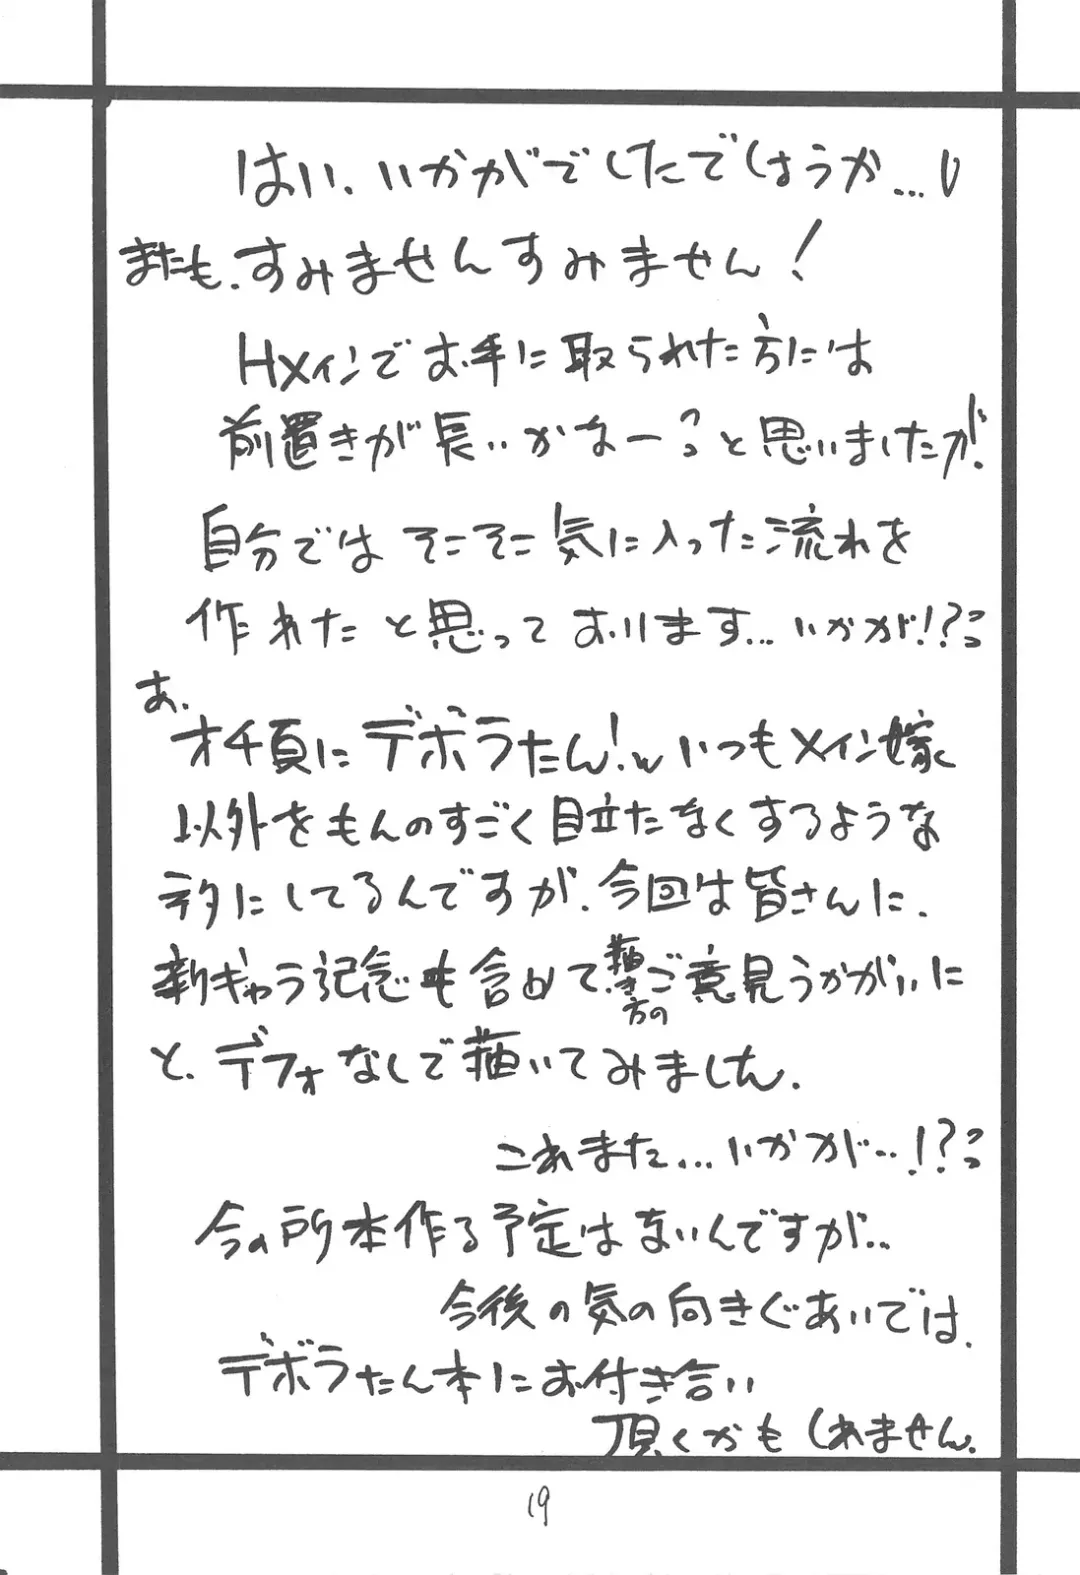 はい、いかがでしたでしょうか…
またも、すみませんすみません!
Hメインでお手に取られた方には
前置きが長いかなー?っと思いましたが、
自分では そこそこ気に入った流れを
作れたと思っております…いかが!?っ
あ、
オチ頁にデボラたん!w いつもメイン嫁
以外をものすごく目立たなくするような
ネタにしてるんですが、今回は皆さんに、
新ギャラ記念も含めて、描き方のご意見うかがいに
と、デフォなしで描いてみました。
これまた…いかが…!?っ
今の所本作る予定はないんですが…
今後の気の向きぐあいでは、
デボラたん本にお付き合い
頂くかもしれません。
19